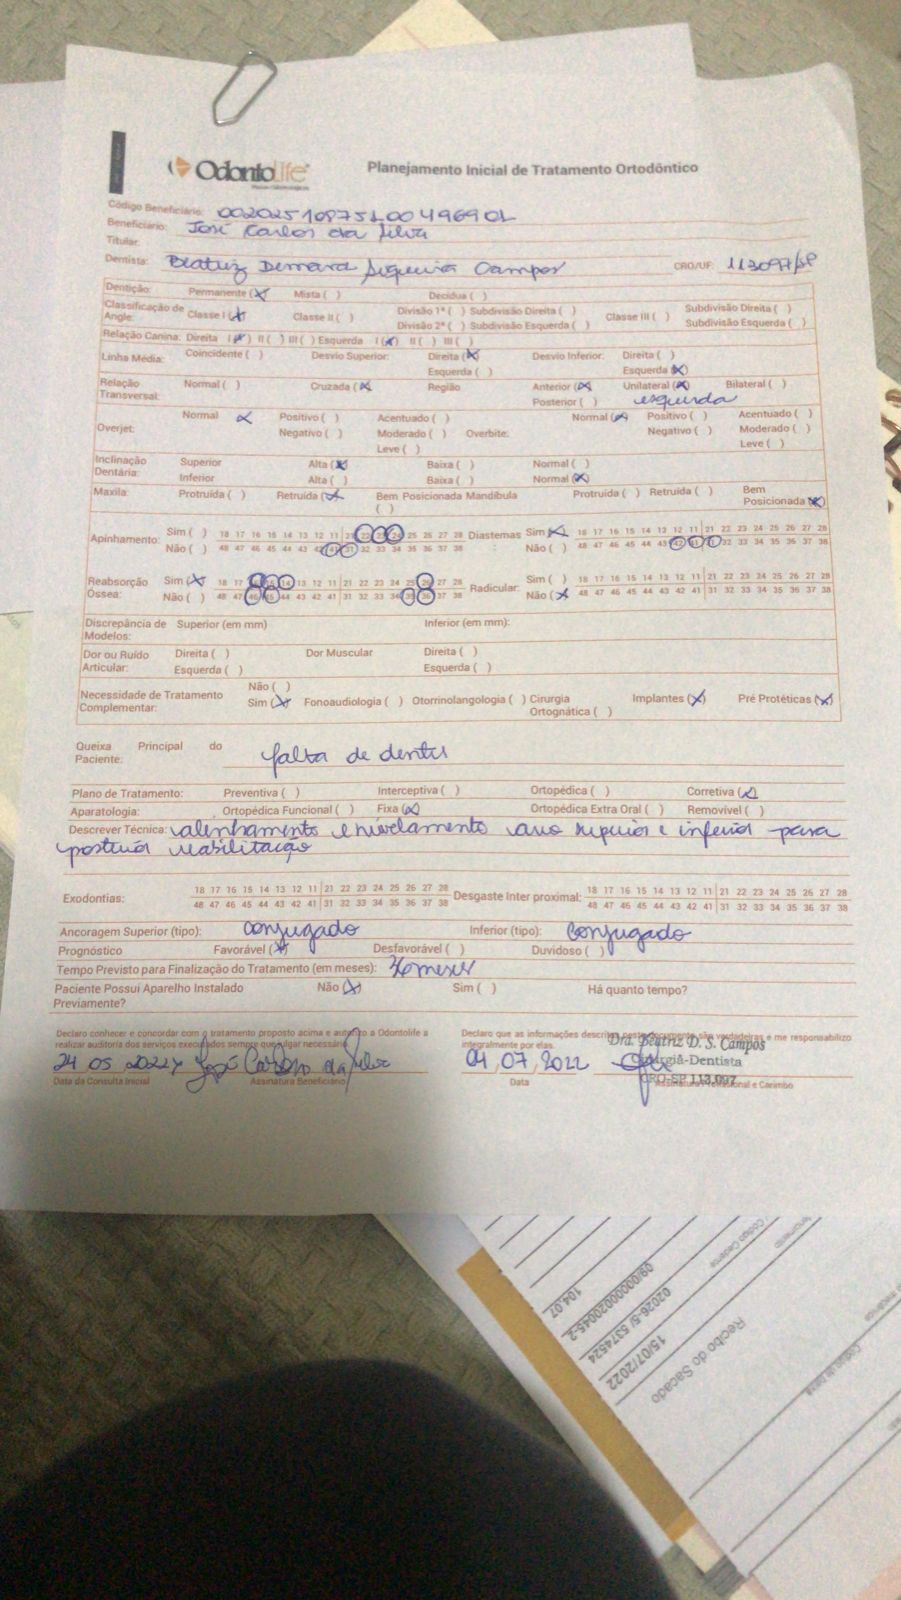 Odontolife
Planejamento Inicial de Tratamento Ortodôntico
Código Beneficiário: 00202510875100496901
Beneficiário: José Carlos da Silva
Titular:
Dentista: Beatriz Siqueira Campos CRO/UF: 113097/SP
Dentição: Permanente (X) Mista ( ) Decídua ( )
Classificação de Angle: Classe I (X) Classe II ( ) Divisão 1ª ( ) Subdivisão Direita ( ) Classe III ( ) Subdivisão Direita ( )
Divisão 2ª ( ) Subdivisão Esquerda ( ) Subdivisão Esquerda ( )
Relação Canina: Direita I (X) II ( ) III ( ) Esquerda I (X) II ( ) III ( )
Linha Média: Coincidente ( ) Desvio Superior: Direita (X) Desvio Inferior: Direita ( )
Esquerda ( ) Esquerda (X)
Relação Transversal: Normal ( ) Cruzada (X) Região Anterior (X) Unilateral (X) Bilateral ( )
Posterior ( ) esquerda
Overjet: Normal X Positivo ( ) Acentuado ( ) Overbite: Normal (X) Positivo ( ) Acentuado ( )
Negativo ( ) Moderado ( ) Negativo ( ) Moderado ( )
Leve ( ) Leve ( )
Inclinação Dentária: Superior Alta (X) Baixa ( ) Normal ( )
Inferior Alta ( ) Baixa ( ) Normal (X)
Maxila: Protruída ( ) Retruída (X) Bem Posicionada ( ) Mandíbula Protruída ( ) Retruída ( ) Bem Posicionada (X)
Apinhamento: Sim ( ) 18 17 16 15 14 13 12 11 21 22 23 24 25 26 27 28 Diastemas: Sim (X) 18 17 16 15 14 13 12 11 21 22 23 24 25 26 27 28
Não ( ) 48 47 46 45 44 43 42 41 31 32 33 34 35 36 37 38 Não ( ) 48 47 46 45 44 43 42 41 31 32 33 34 35 36 37 38
Reabsorção Óssea: Sim (X) 18 17 16 15 14 13 12 11 21 22 23 24 25 26 27 28 Radicular: Sim ( ) 18 17 16 15 14 13 12 11 21 22 23 24 25 26 27 28
Não ( ) 48 47 46 45 44 43 42 41 31 32 33 34 35 36 37 38 Não (X) 48 47 46 45 44 43 42 41 31 32 33 34 35 36 37 38
Discrepância de Modelos: Superior (em mm) Inferior (em mm):
Dor ou Ruído Articular: Direita ( ) Dor Muscular Direita ( )
Esquerda ( ) Esquerda ( )
Necessidade de Tratamento Complementar: Não ( )
Sim (X) Fonoaudiologia ( ) Otorrinolangologia ( ) Cirurgia Ortognática ( ) Implantes (X) Pré Protéticas (X)
Queixa Principal do Paciente: falta de dentes
Plano de Tratamento: Preventiva ( ) Interceptiva ( ) Ortopédica ( ) Corretiva (X)
Aparatologia: Ortopédica Funcional ( ) Fixa (X) Ortopédica Extra Oral ( ) Removível ( )
Descrever Técnica: alinhamento e nivelamento arco superior e inferior para
posterior reabilitação
Exodontias: 18 17 16 15 14 13 12 11 21 22 23 24 25 26 27 28 Desgaste Inter proximal: 18 17 16 15 14 13 12 11 21 22 23 24 25 26 27 28
48 47 46 45 44 43 42 41 31 32 33 34 35 36 37 38 48 47 46 45 44 43 42 41 31 32 33 34 35 36 37 38
Ancoragem Superior (tipo): conjugado Inferior (tipo): conjugado
Prognóstico Favorável (X) Desfavorável ( ) Duvidoso ( )
Tempo Previsto para Finalização do Tratamento (em meses): meses
Paciente Possui Aparelho Instalado Previamente? Não (X) Sim ( ) Há quanto tempo?
Declaro conhecer e concordar com o tratamento proposto acima e autorizo a Odontolife a realizar auditoria dos serviços executados sempre que julgar necessário.
Declaro que as informações descritas neste documento são verdadeiras e me responsabilizo integralmente por elas.
24 05 2022 José Carlos da Silva
Data da Consulta Inicial Assinatura Beneficiário
04,07,2022
Dra. Beatriz D. S. Campos
Cirurgiã-Dentista
CRO-SP 113.097
Data Assinatura Profissional e Carimbo
Recibo do Sacado
15/07/2022
02026-5/ 5374524
09/00000020045-2
104,07
Código Cedente